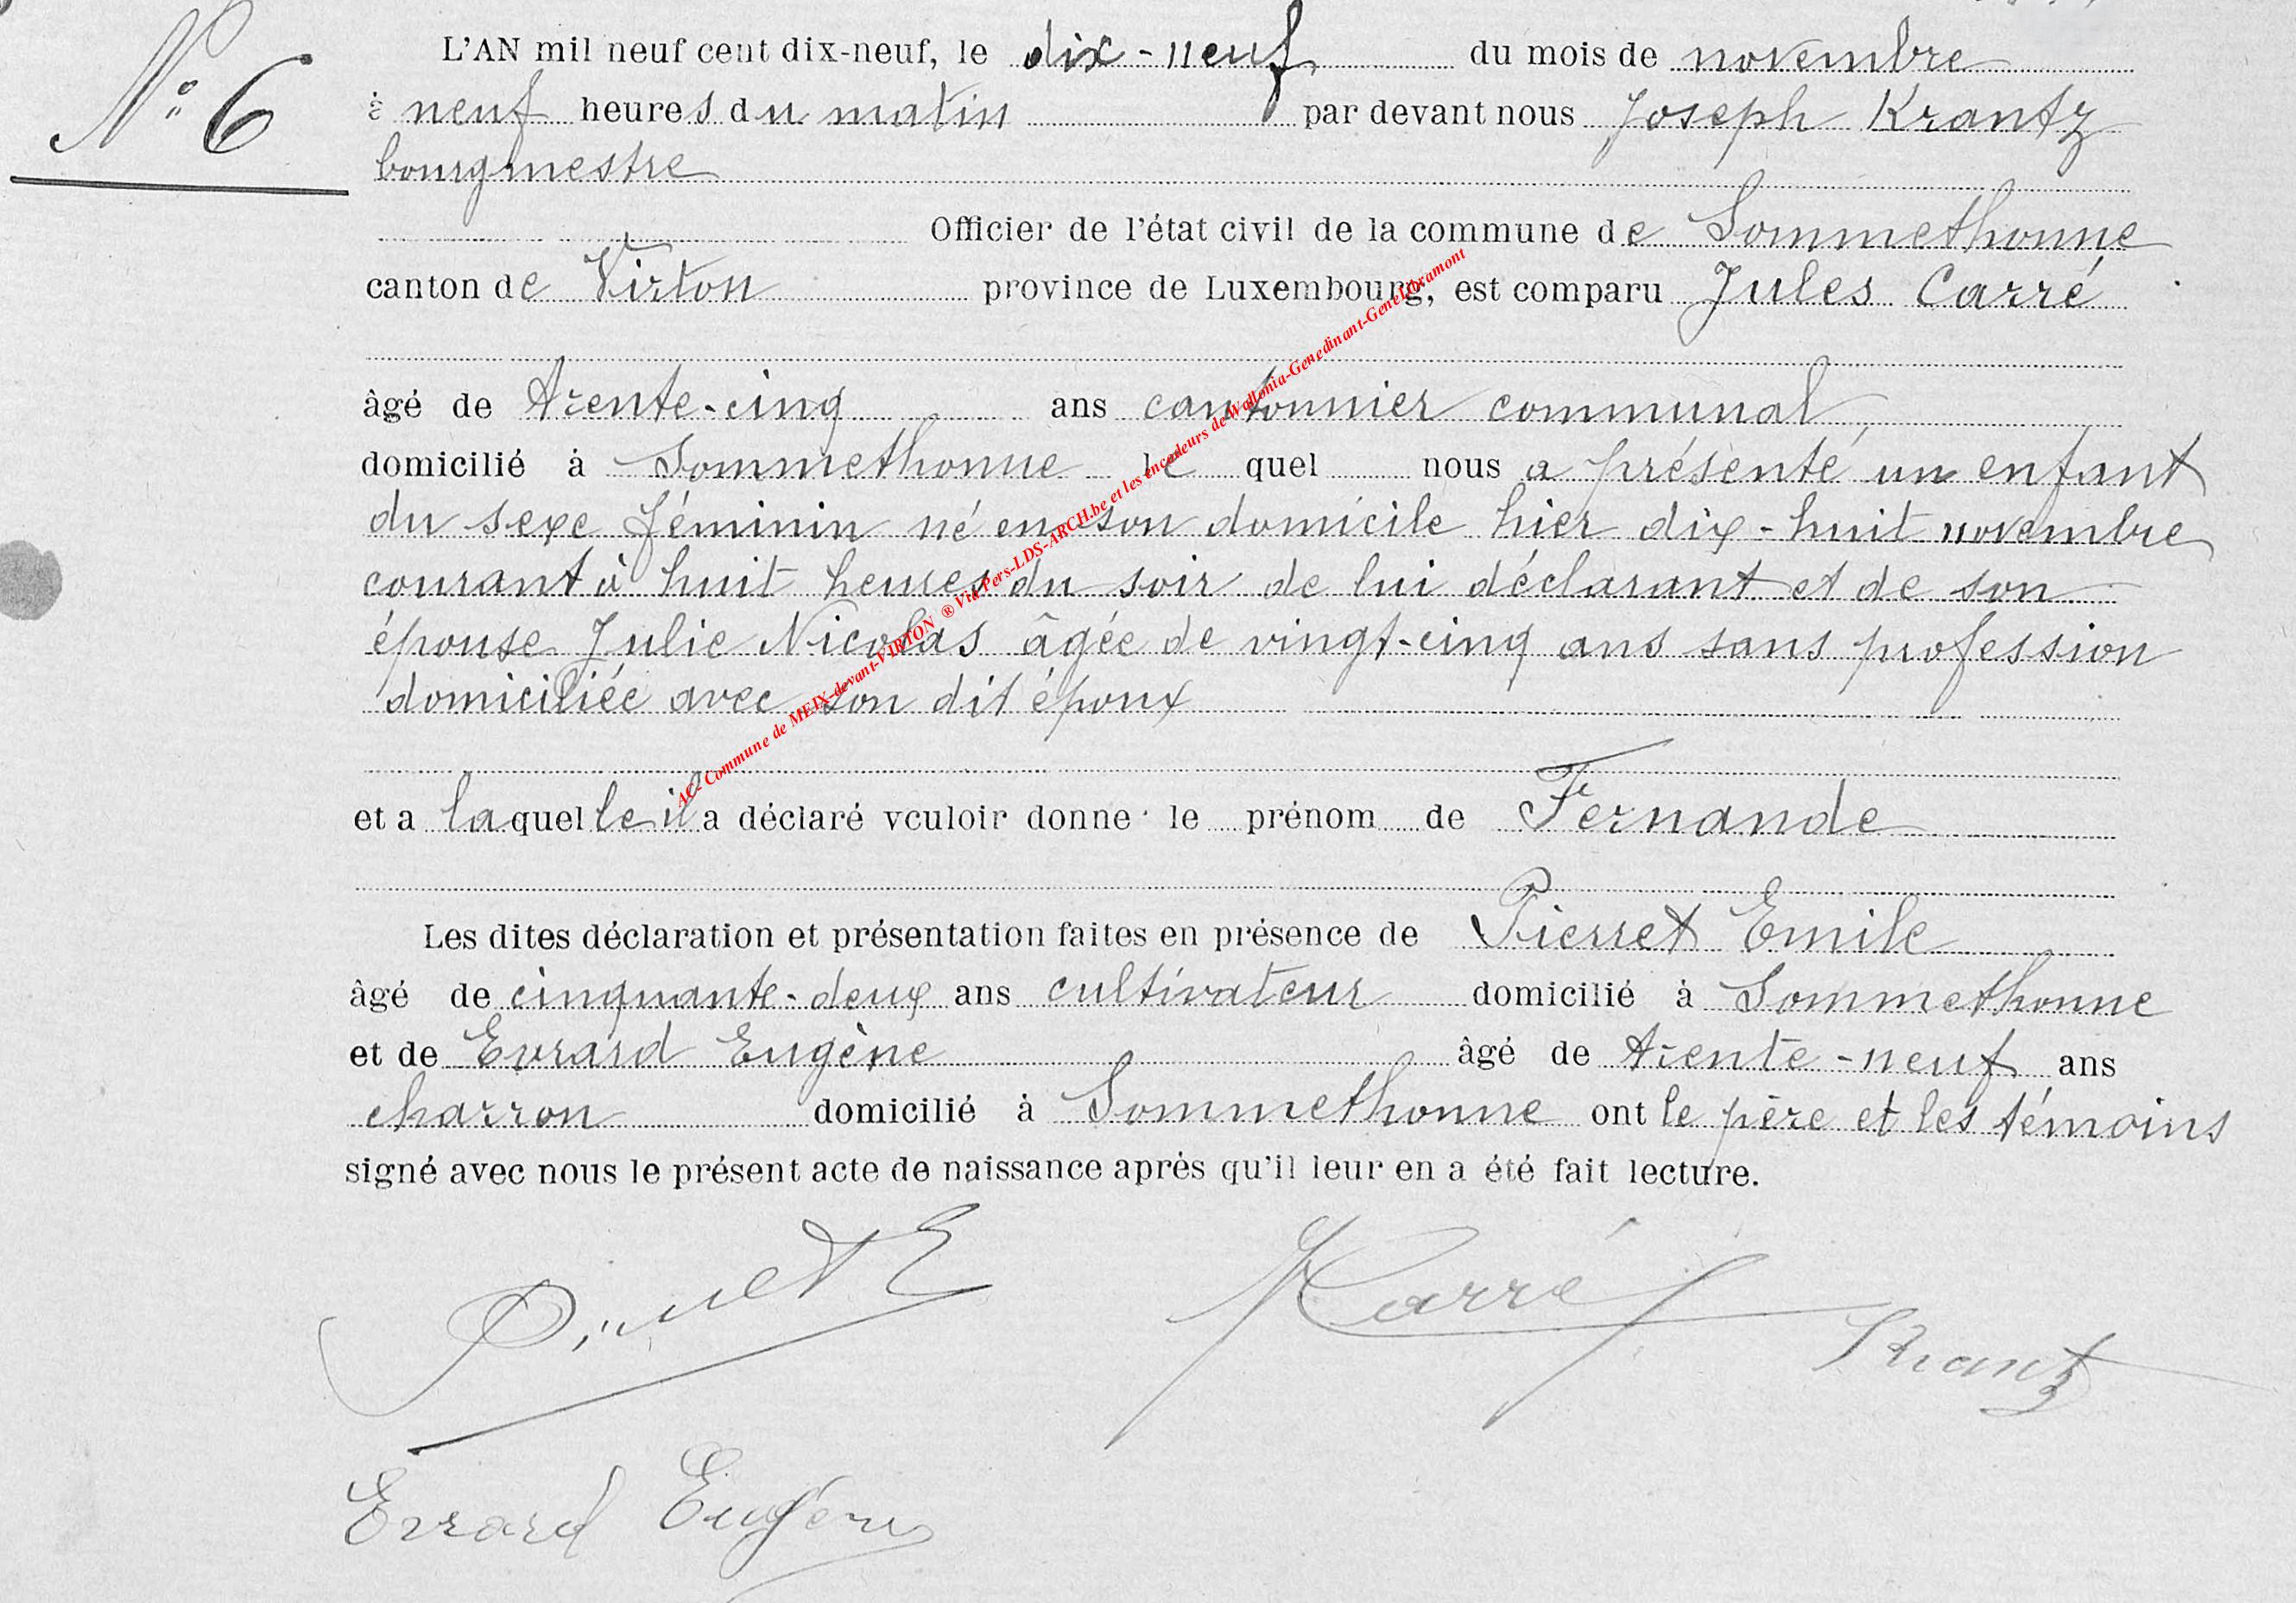 N° 6
L'AN mil neuf cent dix-neuf, le dix-neuf du mois de novembre
à neuf heures du matin par devant nous Joseph Krantz
bourgmestre
Officier de l'état civil de la commune de Sommethonne
canton de Virton province de Luxembourg, est comparu Jules Carré
âgé de trente-cinq ans cantonnier communal
domicilié à Sommethonne le quel nous a présenté un enfant
du sexe féminin né en son domicile hier dix-huit novembre
courant à huit heures du soir de lui déclarant et de son
épouse Julie Nicolas âgée de vingt-cinq ans sans profession
domiciliée avec son dit époux
et a laquelle il a déclaré vouloir donne le prénom de Fernande
Les dites déclaration et présentation faites en présence de Pierret Emile
âgé de cinquante-deux ans cultivateur domicilié à Sommethonne
et de Evrard Eugène âgé de trente-neuf ans
charron domicilié à Sommethonne ont le père et les témoins
signé avec nous le présent acte de naissance après qu'il leur en a été fait lecture.
Pierret E
Carré
Krantz
Evrard Eugène
AC- Commune de MEIX-devant-VIRTON ® Via Pers-LDS-ARCH.be et les encodeurs de Wallonia-Genedinant-GeneLibramont